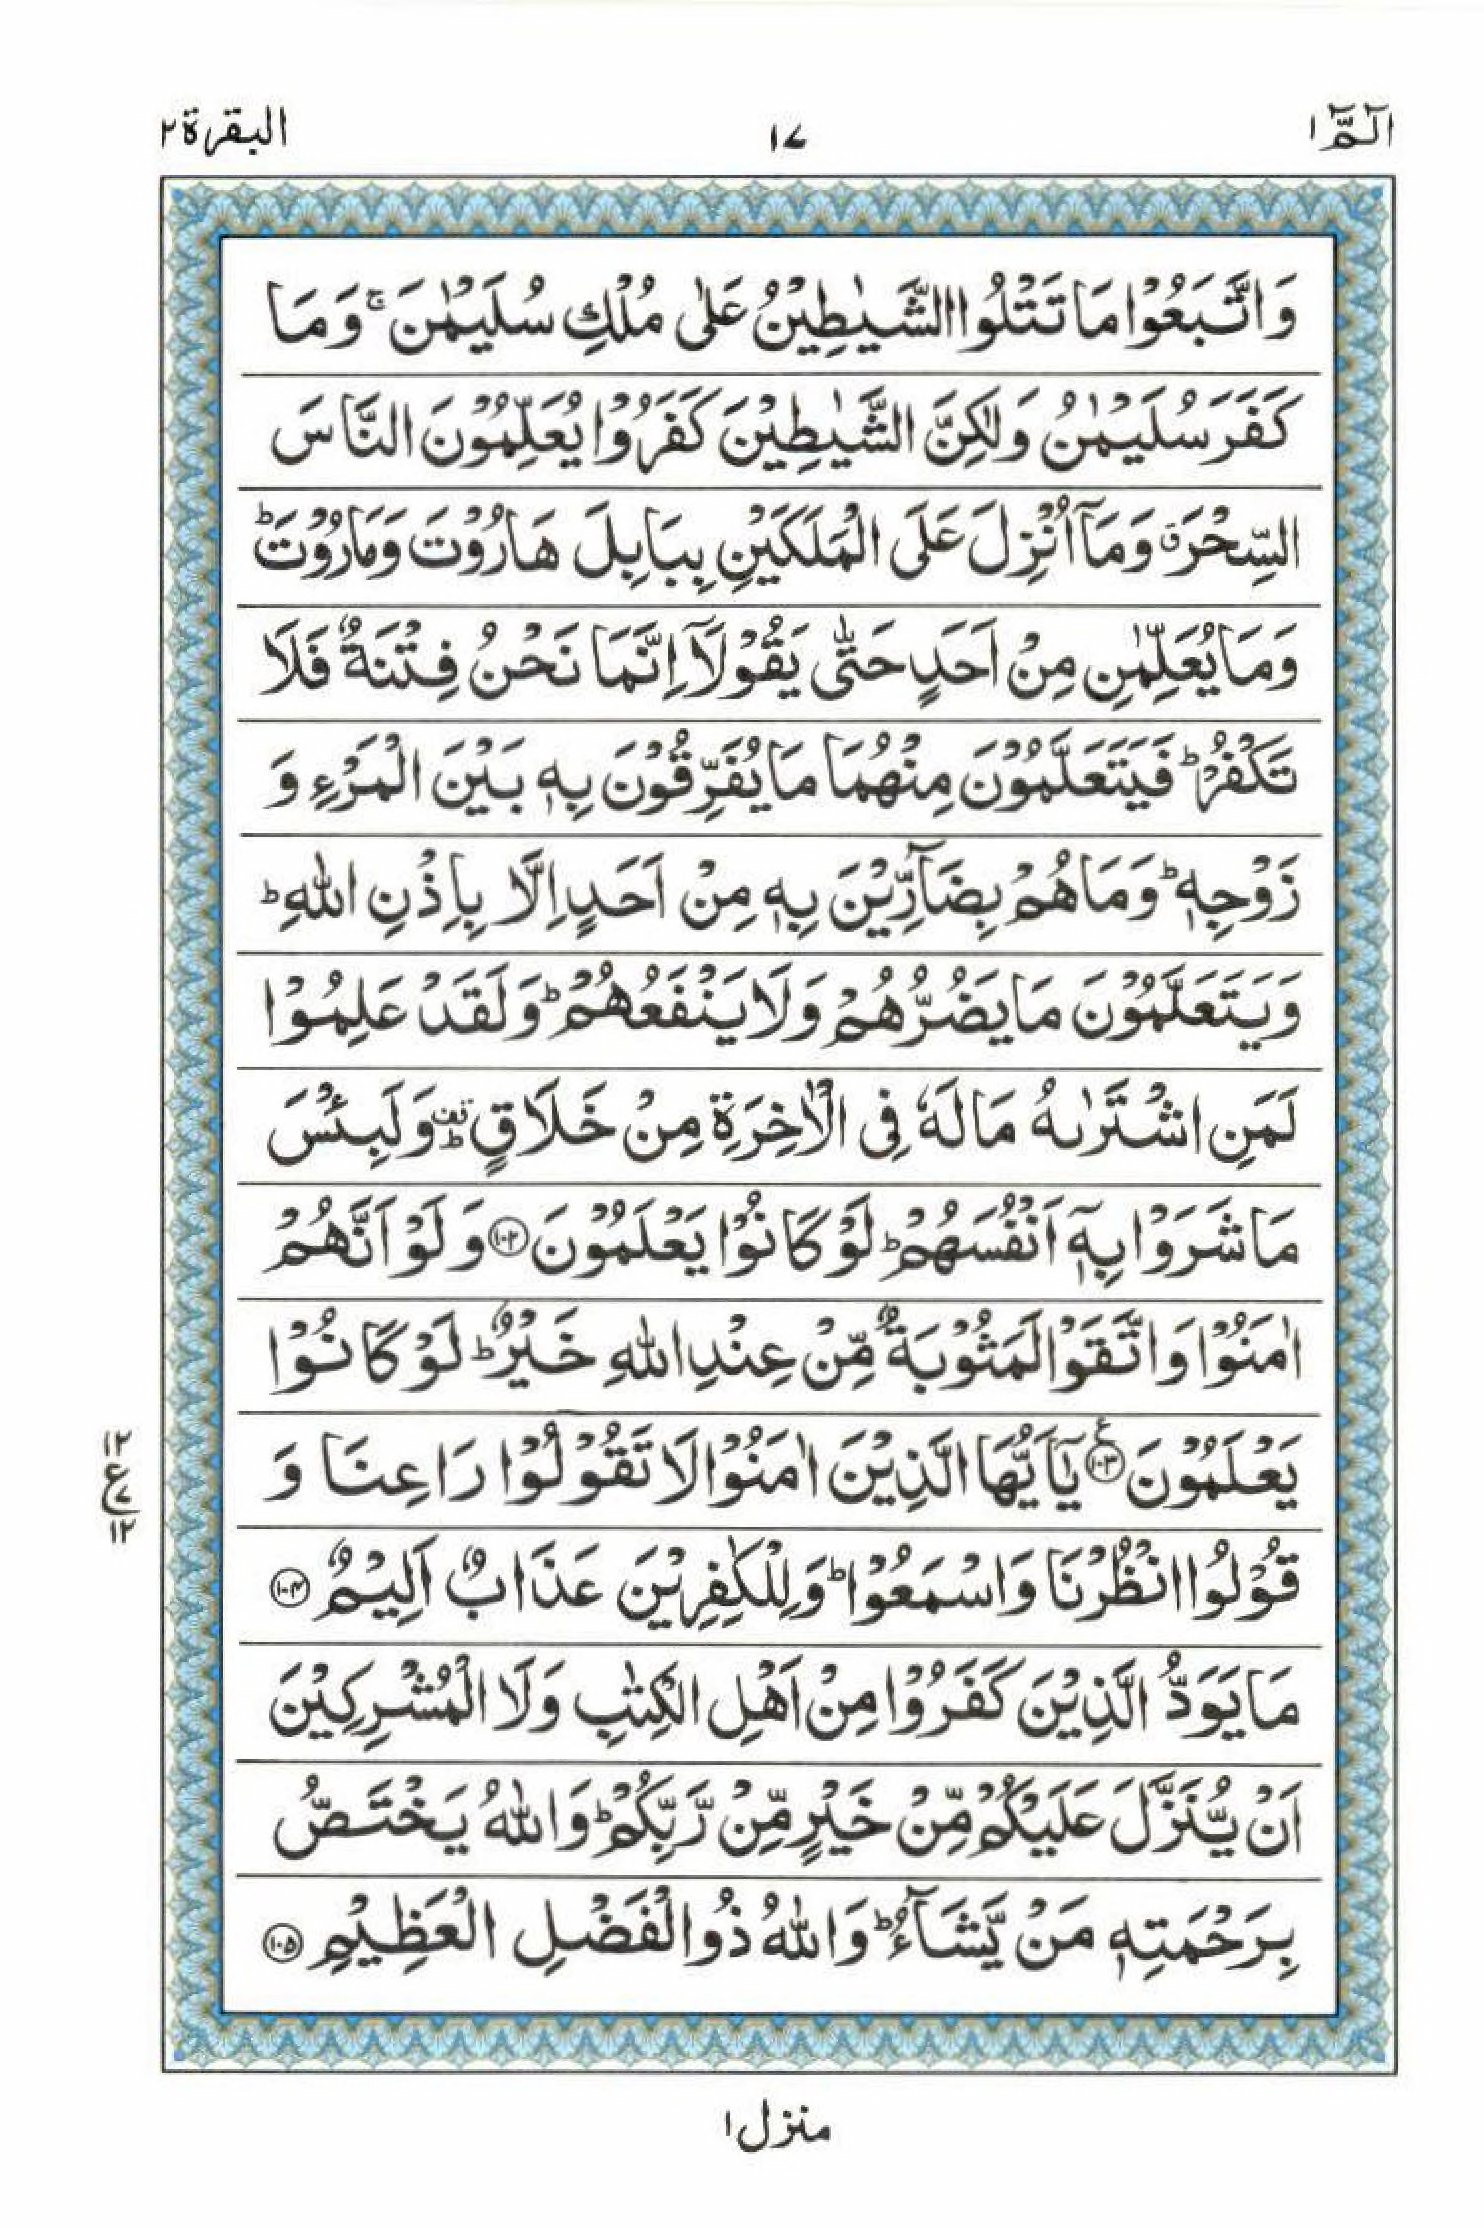 الٓمّٓ ١ ١٧ البقرة ٢
وَاتَّبَعُوْا مَا تَتْلُوا الشَّيٰطِيْنُ عَلٰى مُلْكِ سُلَيْمٰنَ ۚ وَمَا
كَفَرَ سُلَيْمٰنُ وَلٰكِنَّ الشَّيٰطِيْنَ كَفَرُوْا يُعَلِّمُوْنَ النَّاسَ
السِّحْرَ ۗ وَمَاۤ اُنْزِلَ عَلَى الْمَلَكَيْنِ بِبَابِلَ هَارُوْتَ وَمَارُوْتَ ؕ
وَمَا يُعَلِّمٰنِ مِنْ اَحَدٍ حَتّٰى يَقُوْلَاۤ اِنَّمَا نَحْنُ فِتْنَةٌ فَلَا
تَكْفُرْ ؕ فَيَتَعَلَّمُوْنَ مِنْهُمَا مَا يُفَرِّقُوْنَ بِهٖ بَيْنَ الْمَرْءِ وَ
زَوْجِهٖ ؕ وَمَا هُمْ بِضَآرِّيْنَ بِهٖ مِنْ اَحَدٍ اِلَّا بِاِذْنِ اللّٰهِ ؕ
وَيَتَعَلَّمُوْنَ مَا يَضُرُّهُمْ وَلَا يَنْفَعُهُمْ ؕ وَلَقَدْ عَلِمُوْا
لَمَنِ اشْتَرٰىهُ مَا لَهٗ فِى الْاٰخِرَةِ مِنْ خَلَاقٍ ؕ وَلَبِئْسَ
مَا شَرَوْا بِهٖۤ اَنْفُسَهُمْ ؕ لَوْ كَانُوْا يَعْلَمُوْنَ ١٠٢ وَلَوْ اَنَّهُمْ
اٰمَنُوْا وَاتَّقَوْا لَمَثُوْبَةٌ مِّنْ عِنْدِ اللّٰهِ خَيْرٌ ؕ لَوْ كَانُوْا
يَعْلَمُوْنَ ١٠٣ يٰۤاَيُّهَا الَّذِيْنَ اٰمَنُوْا لَا تَقُوْلُوْا رَاعِنَا وَ
قُوْلُوا انْظُرْنَا وَاسْمَعُوْا ؕ وَلِلْكٰفِرِيْنَ عَذَابٌ اَلِيْمٌ ١٠٤
مَا يَوَدُّ الَّذِيْنَ كَفَرُوْا مِنْ اَهْلِ الْكِتٰبِ وَلَا الْمُشْرِكِيْنَ
اَنْ يُّنَزَّلَ عَلَيْكُمْ مِّنْ خَيْرٍ مِّنْ رَّبِّكُمْ ؕ وَاللّٰهُ يَخْتَصُّ
بِرَحْمَتِهٖ مَنْ يَّشَآءُ ؕ وَاللّٰهُ ذُو الْفَضْلِ الْعَظِيْمِ ١٠٥
١٢
ع ٧
١٢
منزل ١